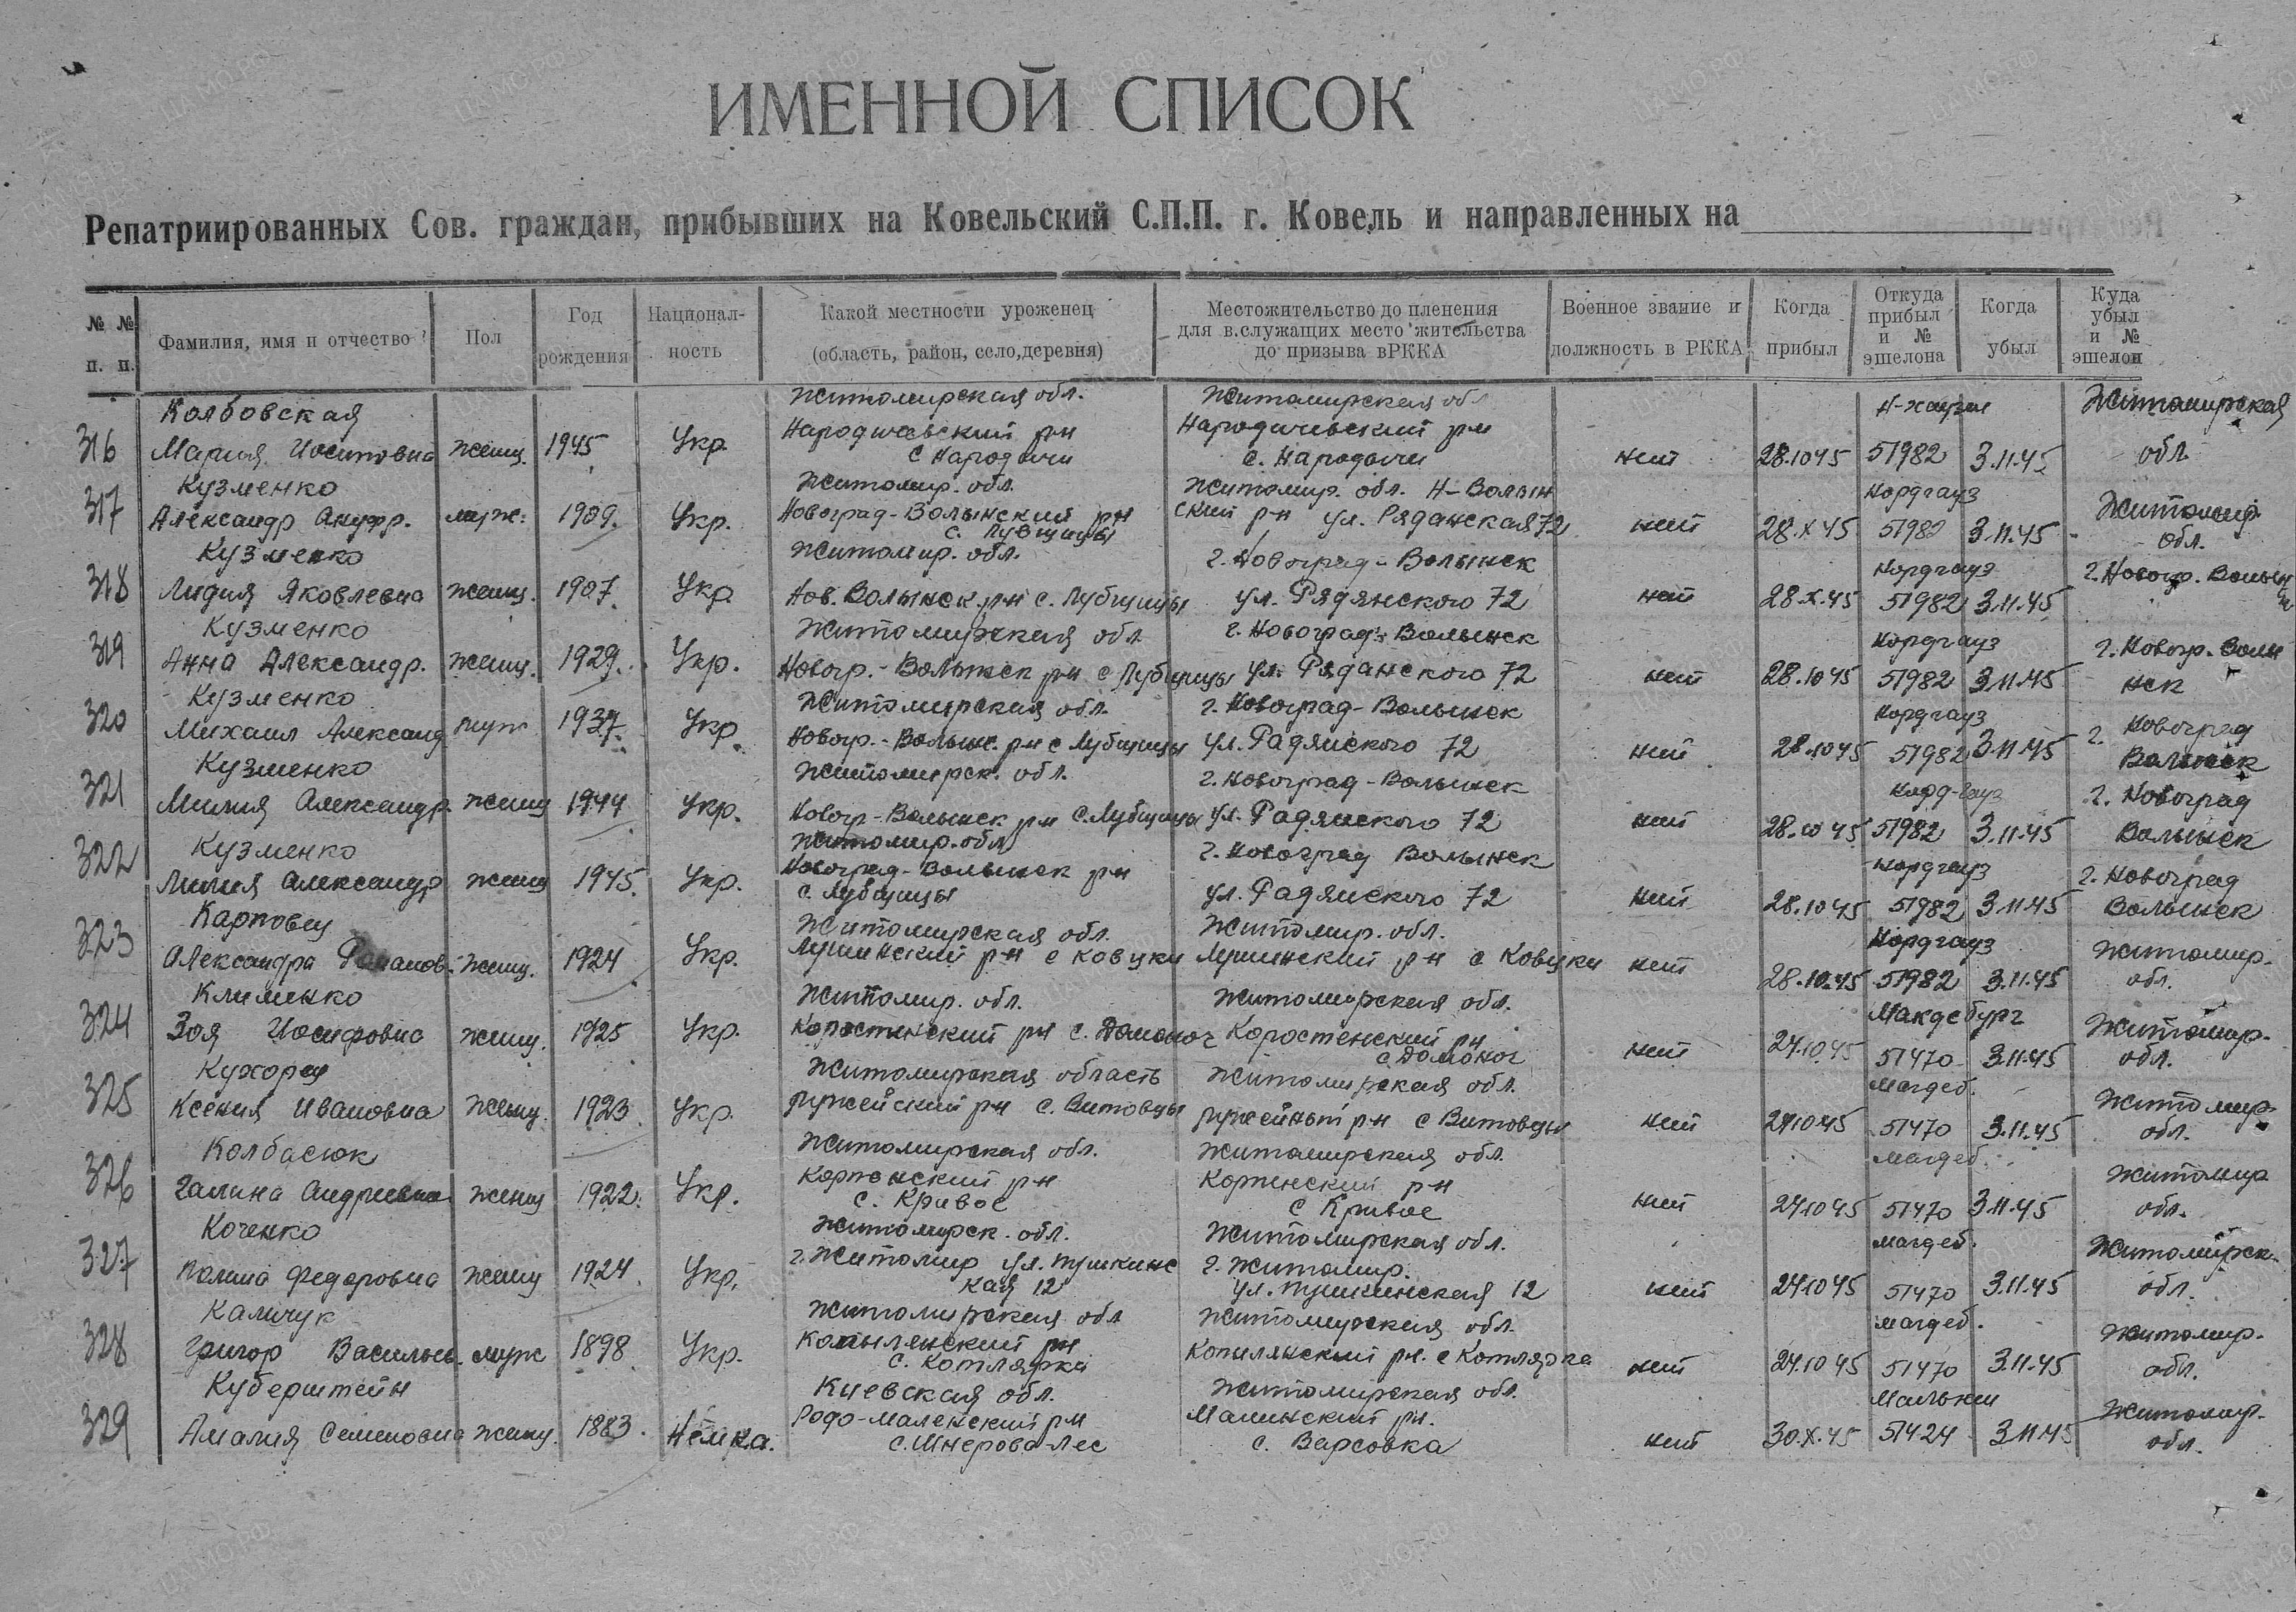 ИМЕННОЙ СПИСОК
Репатриированных Сов. граждан, прибывших на Ковельский С.П.П. г. Ковель и направленных на
№ № п. п.
Фамилия, имя и отчество
Пол
Год рождения
Национальность
Какой местности уроженец (область, район, село,деревня)
Местожительство до пленения для в.служащих место жительства до призыва вРККА
Военное звание и должность в РККА
Когда прибыл
Откуда прибыл и № эшелона
Когда убыл
Куда убыл и № эшелон
Колбовская Житомирская обл. Житомирская обл Житомирская
316 Мария Иосиповна женщ. 1945 Укр. Народичевский рн с Народичи Народичевский рн с. Народичи нет 28.10 45 51982 3.11.45 обл
Кузменко Житомир. обл. Житомир. обл. Н-Волын Нордгауз Житомир.
317 Александр Ануфр. муж. 1909. Укр. Новоград-Волынский рн ский р-н ул. Ряданская 72 нет 28.X 45 51982 3.11.45 обл.
Кузменко Житомир. обл. г. Новоград-Волынск Нордгауз г. Новогр. Волын
318 Лидия Яковлевна женщ. 1907. Укр. Нов. Волынск рн с. Лубчицы ул. Рядянского 72 нет 28.X.45 51982 3.11.45
Кузменко Житомирская обл г. Новоград-Волынск Нордгауз г. Новогр. Волы
319 Анна Александр. женщ. 1929. Укр. Новогр.-Волынск рн с Лубчицы ул. Ряданского 72 нет 28.10 45 51982 3.11.45 нск
Кузменко Житомирская обл. г. Новоград-Волынск Нордгауз г. Новоград
320 Михаил Александ муж 1937. Укр. Новогр.-Волынс. рн с Лубчицы ул. Радянского 72 нет 28.10 45 51982 3.11.45 Волынск
Кузменко Житомирск. обл. г. Новоград-Волынск Норд-гауз г. Новоград
321 Милия Александр. женщ 1944 Укр. Новогр-Волынск рн с. Лубчицы ул. Радянского 72 нет 28.10 45 51982 3.11.45 Волынск
Кузменко Житомир. обл г. Новоград Волынск Нордгауз г. Новоград
322 Лилия Александр женщ 1945. Укр. Новоград-Волынск рн с. Лубчицы ул. Радянского 72 нет 28.10 45 51982 3.11.45 Волынск
Карповец Житомирская обл. Житомир. обл. Нордгауз Житомир.
323 Александра женщ. 1924 Укр. Лучинский р-н с Ковцки Лучинский рн с Ковцки нет 28.10.45 51982 3.11.45 обл.
Клименко Житомир. обл. Житомирская обл. Макдебург Житомир.
324 Зоя Иосифовна женщ. 1925 Укр. Коростенский рн с. Домоног Коростенский рн с. Домоног нет 24.10.45 51470 3.11.45 обл.
Кухорец Житомирская область Житомирская обл. Магдеб. Житомир.
325 Ксения Ивановна женщ. 1923 Укр. ружейский рн с. Витовцы ружейный рн с Витовцы нет 24.10 45 51470 3.11.45 обл.
Колбасюк Житомирская обл. Житомирская обл. магдеб. Житомир
326 Галина Андриевна женщ 1922. Укр. Корнэнский рн с. Кривое Корненский рн с Кривое нет 24.10 45 51470 3.11.45 обл.
Коченко Житомирск. обл. Житомирская обл. магдеб. Житомирск.
327 Полина Федоровна женщ 1924. Укр. г. Житомир ул. Пушкинс кая 12 г. Житомир. ул. Пушкинская 12 нет 24.10 45 51470 3.11.45 обл.
Кальчук Житомирская обл Житомирская обл. магдеб. Житомир.
328 Григор Васильев. муж 1898 Укр. Копылянский рн с. Котлярка Копилянский рн. с Котлярка нет 24.10 45 51470 3.11.45 обл.
Куберштейн Киевская обл. Житомирская обл. Житомир.
329 Амалия Семеновна женщ. 1883. Немка. Родо-маленский рн Малинский рн. с. Варсовка нет 30.X.45 51424 3.11.45 обл.